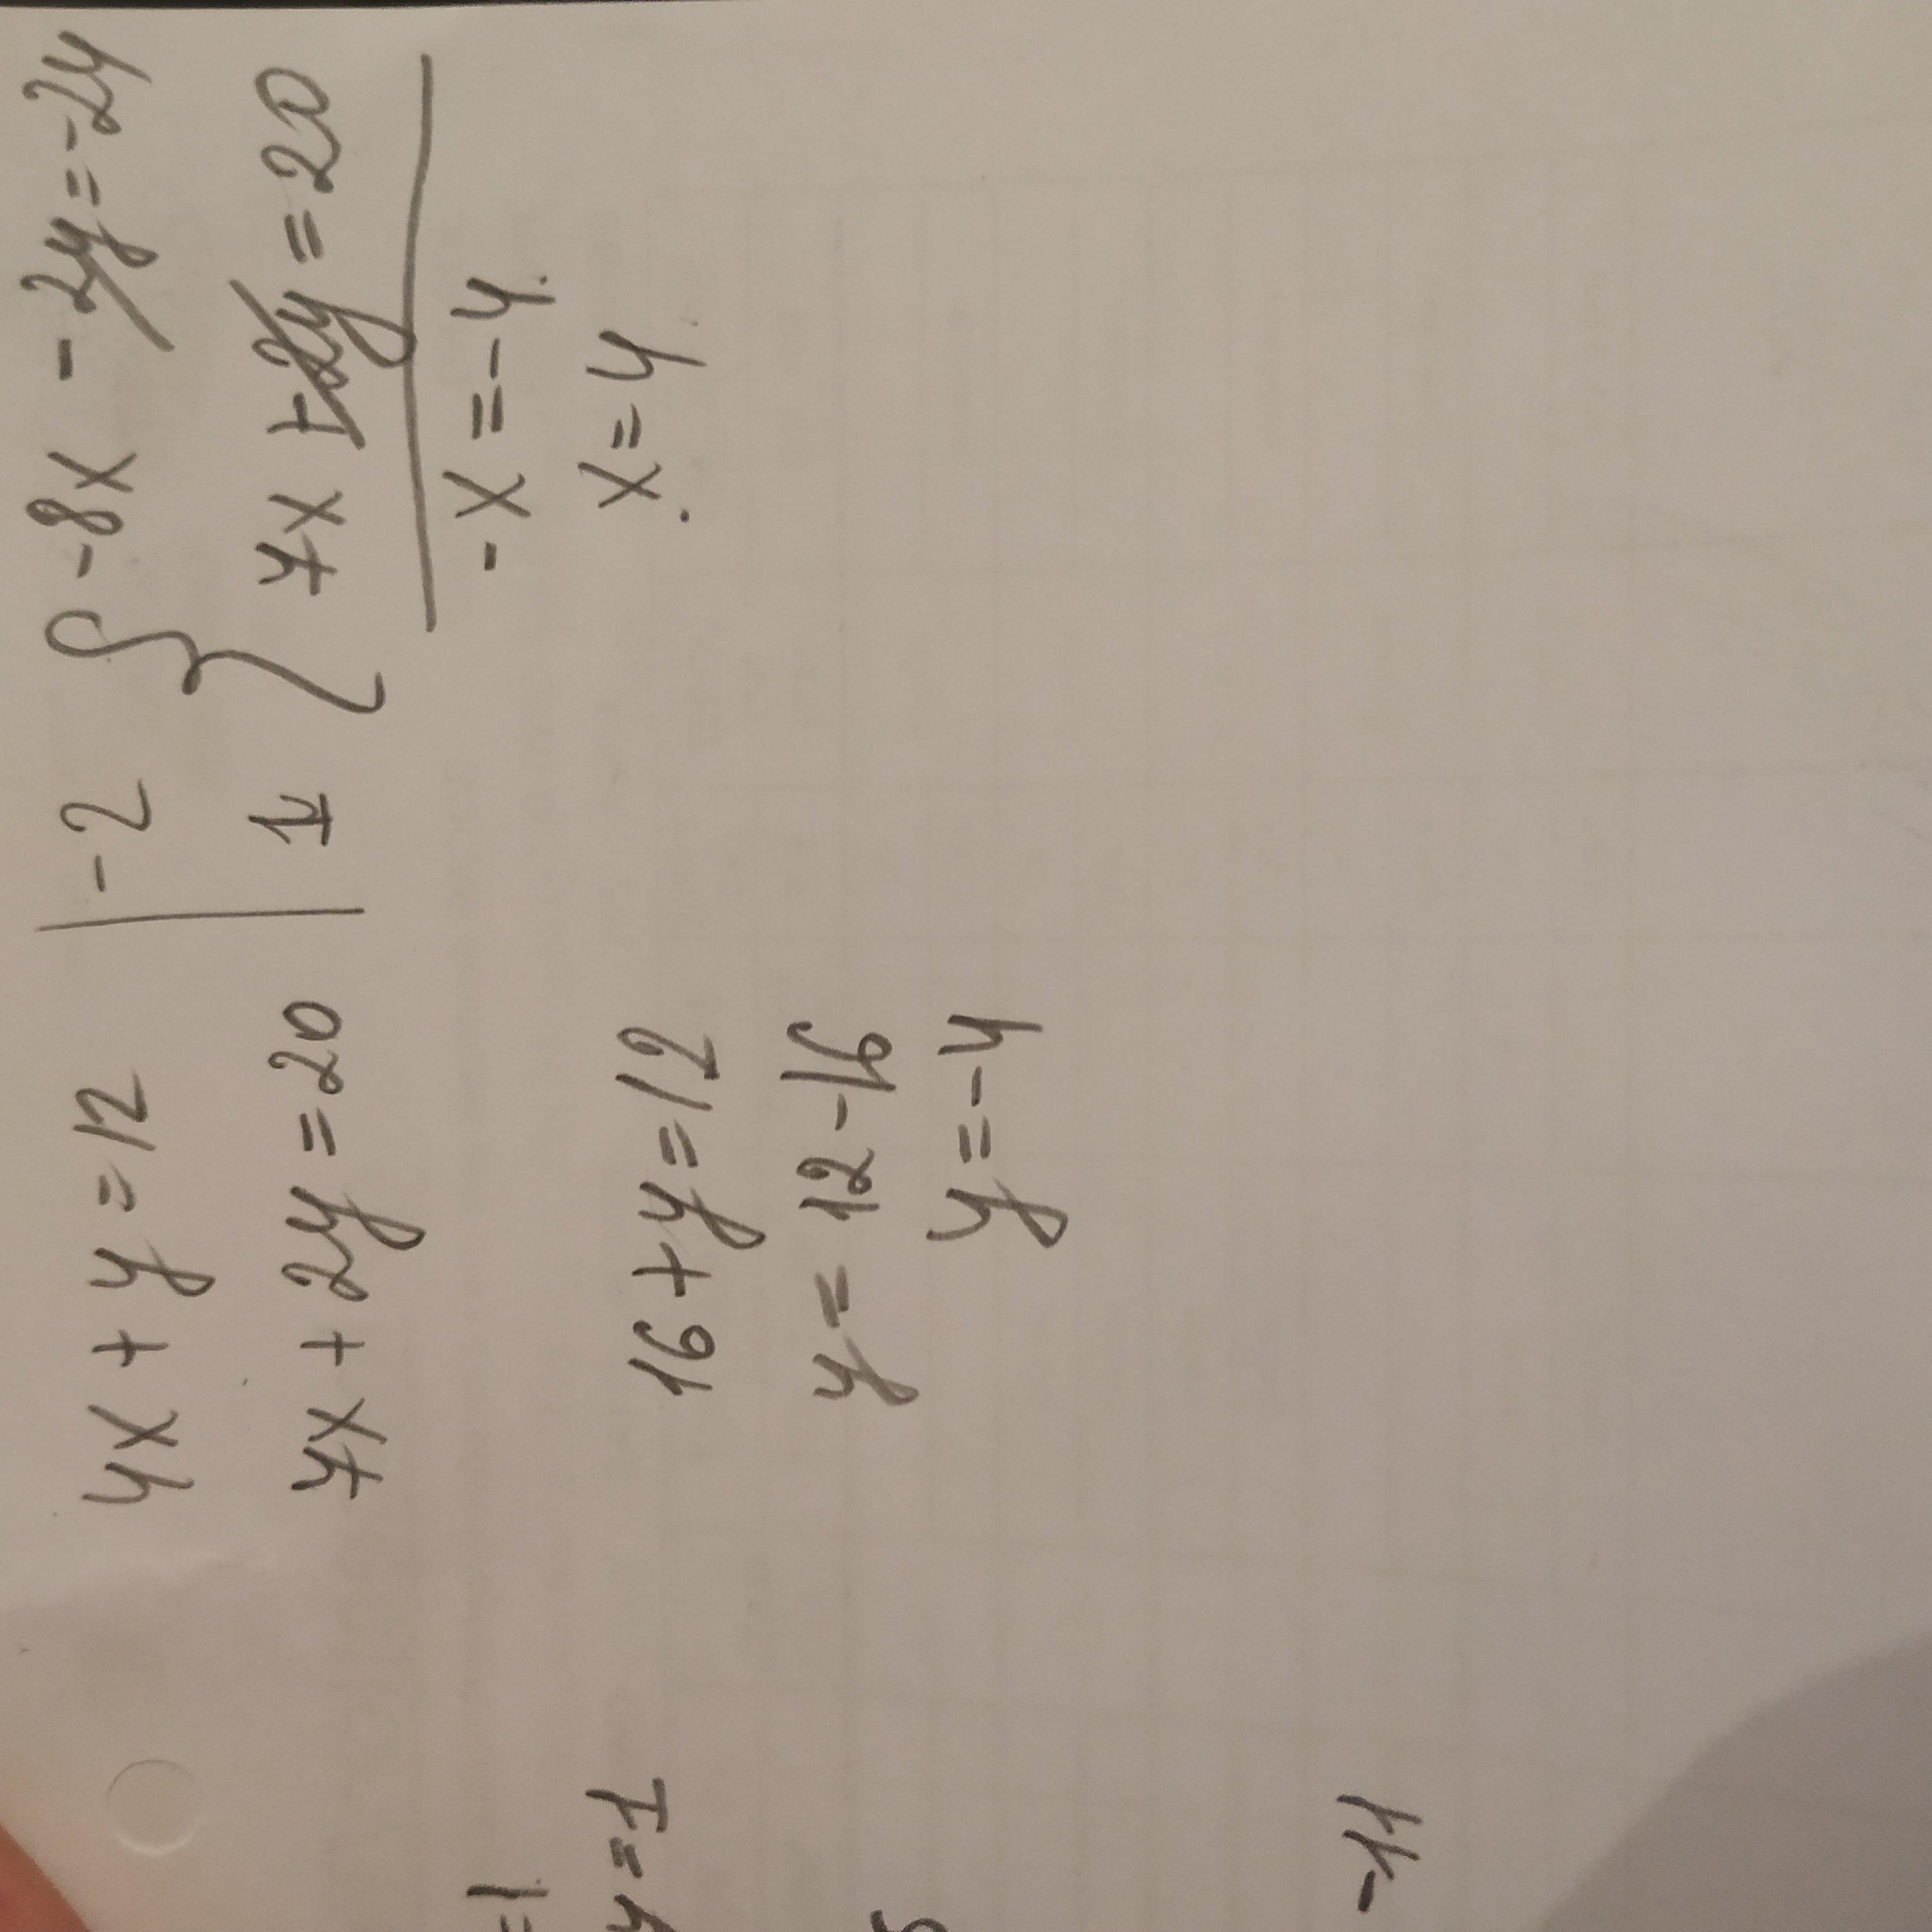 4x + y = 12 | -2 { -8x - 2y = -24
7x + 2y = 20 | 1 { 7x + 2y = 20
-x = -4.
x = 4
16 + y = 12
y = 12 - 16
y = -4
= 1
y = 1
-11